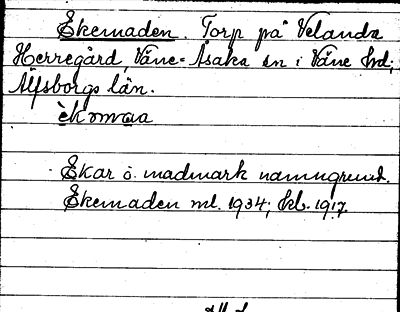 Ekemaden. Torp på Velanda
Herregård Väne-Åsaka sn i Väne hd;
Älfsborgs län.
Ekar o. madmark namngrund.
Ekemaden ml. 1934; kb. 1917.